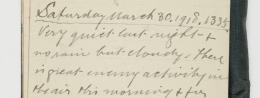 Saturday March 30. 1918. 1335
Very quiet last night &
no rain but cloudy. There
is great enemy activity in
the air this morning & for